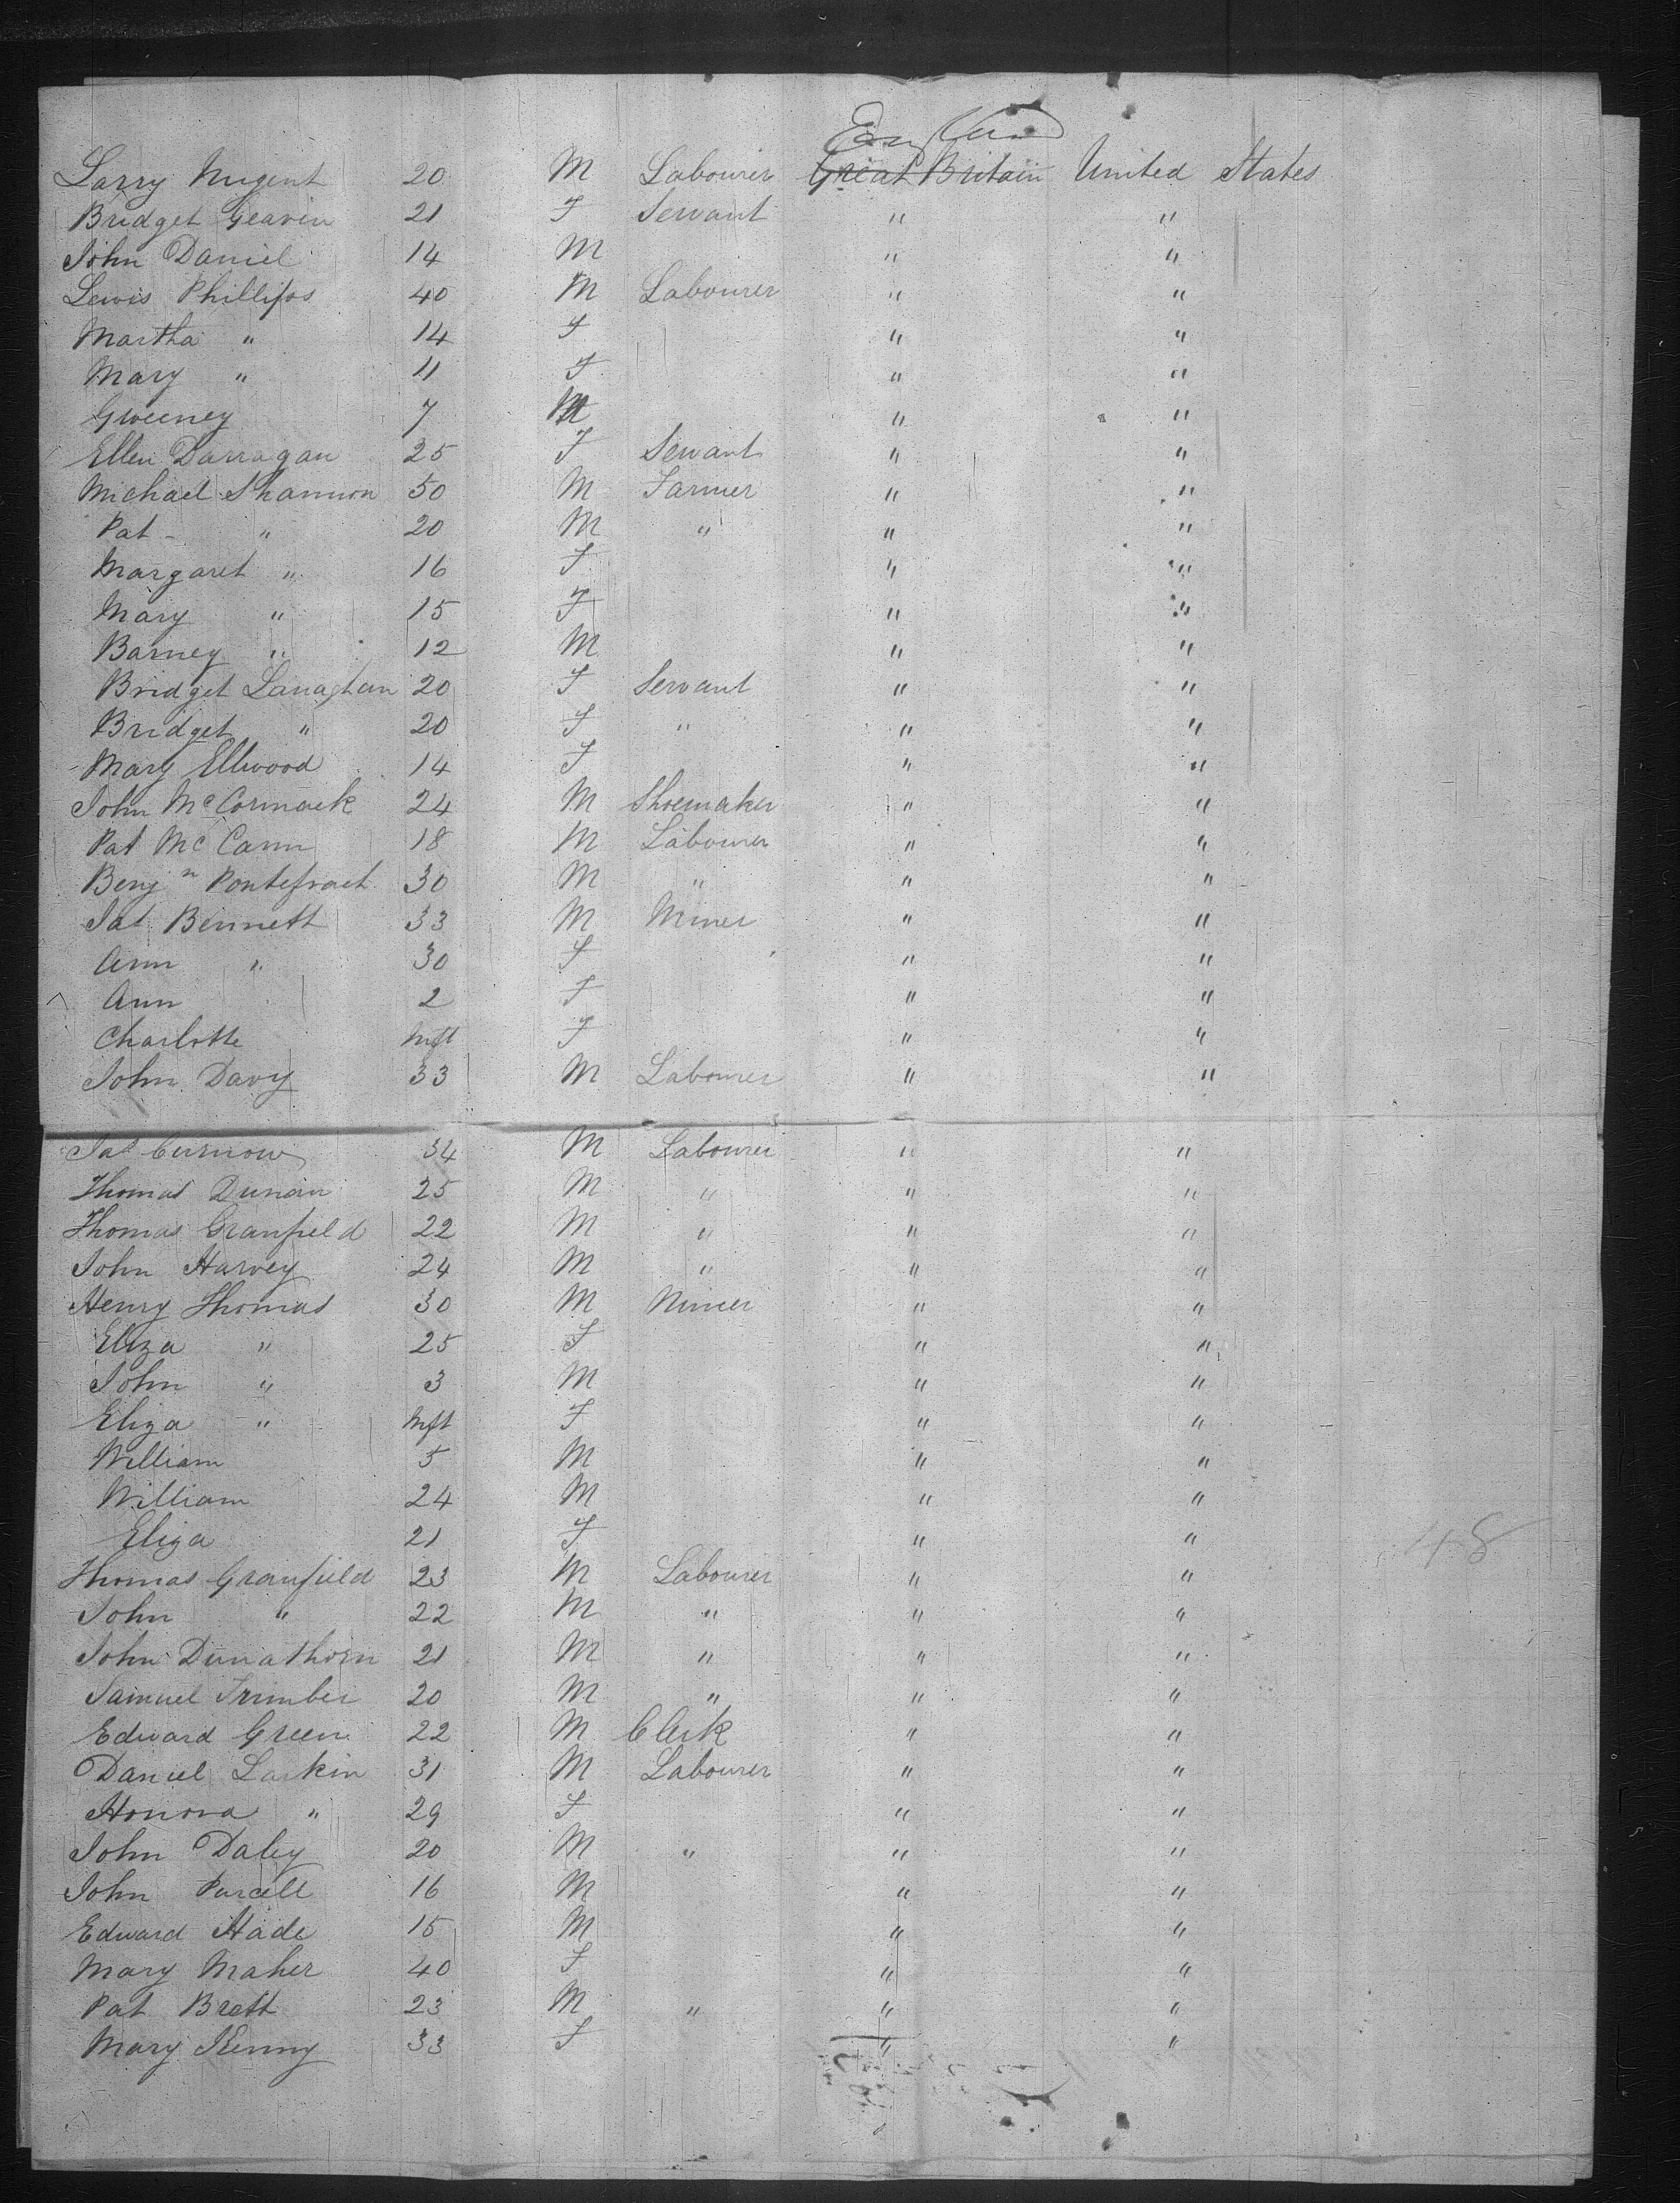 England
Larry Nugent 20 M Labourer Great Britain United States
Bridget Geavin 21 F Servant " "
John Daniel 14 M " "
Lewis Phillips 40 M Labourer " "
Martha " 14 F " "
Mary " 11 F " "
Gweeney 7 M " "
Ellen Darragan 25 F Servant " "
Michael Shannon 50 M Farmer " "
Pat - " 20 M " " "
Margaret " 16 F " "
Mary " 15 F " "
Barney " 12 M " "
Bridget Lanaghan 20 F Servant " "
Bridget " 20 F " " "
Mary Ellwood 14 F " "
John McCormack 24 M Shoemaker " "
Pat McCann 18 M Labourer " "
Benjn Pontefract 30 M " " "
Jas Bennett 33 M Miner " "
Ann " 30 F " "
Ann 2 F " "
Charlotte Inft F " "
John Davy 33 M Labourer " "
Jas Curnow 34 M Labourer " "
Thomas Dunan 25 M " " "
Thomas Granfield 22 M " " "
John Harvey 24 M " " "
Henry Thomas 30 M Miner " "
Eliza " 25 F " "
John " 3 M " "
Eliza " Inft F " "
William 5 M " "
William 24 M " "
Eliza 21 F " " 48
Thomas Granfield 23 M Labourer " "
John " 22 M " " "
John Dunathorn 21 M " " "
Samuel Trimber 20 M " " "
Edward Green 22 M Clerk " "
Daniel Larkin 31 M Labourer " "
Honora " 29 F " "
John Daley 20 M " " "
John Purcell 16 M " "
Edward Hade 15 M " "
Mary Maher 40 F " "
Pat Brett 23 M " " "
Mary Kenny 33 F " "